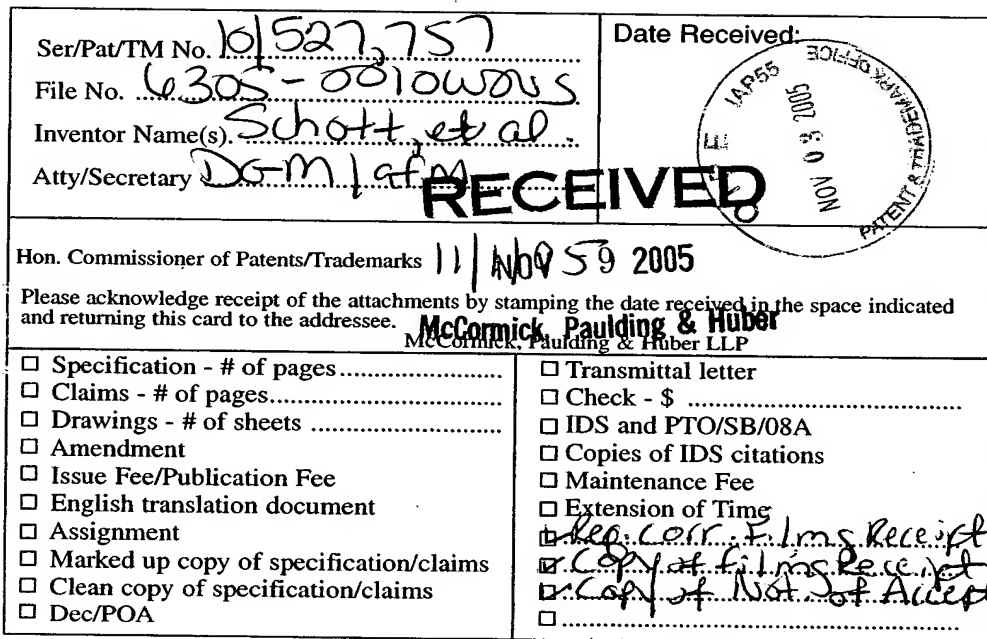 Ser/Pat/TM No. 10/527,757
File No. 6305-0010WOUS
Inventor Name(s). Schott, et al.
Atty/Secretary DGM/afm
Date Received:
IAP55
NOV 03 2005
PATENT & TRADEMARK OFFICE
RECEIVED
Hon. Commissioner of Patents/Trademarks
NOV 9 2005
Please acknowledge receipt of the attachments by stamping the date received in the space indicated
and returning this card to the addressee.
McCormick, Paulding & Huber
McCormick, Paulding & Huber LLP
□ Specification - # of pages
□ Claims - # of pages
□ Drawings - # of sheets
□ Amendment
□ Issue Fee/Publication Fee
□ English translation document
□ Assignment
□ Marked up copy of specification/claims
□ Clean copy of specification/claims
□ Dec/POA
□ Transmittal letter
□ Check - $
□ IDS and PTO/SB/08A
□ Copies of IDS citations
□ Maintenance Fee
□ Extension of Time
Req. Corr. Filing Receipt
Copy of Filing Receipt
Copy of Not. of Accept
□